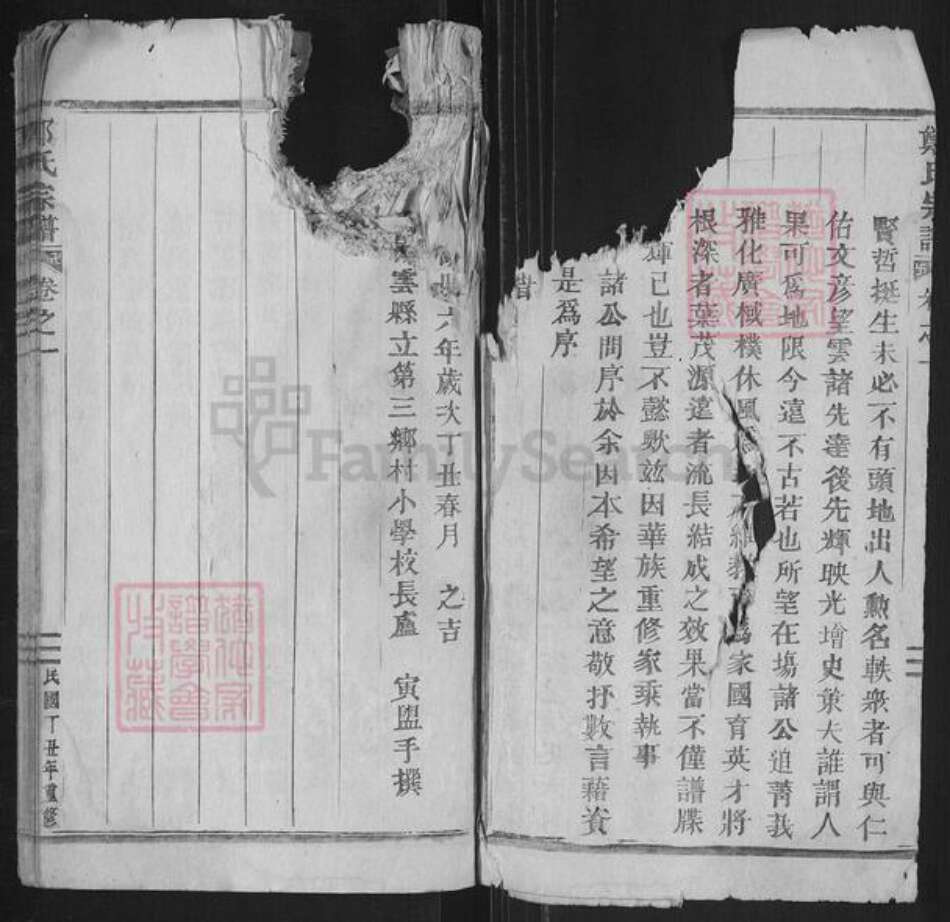 鄭氏宗譜 卷之一
賢哲挺生未必不有頭地出人勲名軼衆者可與仁
佑文彦望雲諸先達後先輝映光增史策夫誰謂人
果可爲地限今遠不古若也所望在塲諸公追菁莪
雅化廣棫樸休風 爲家國育英才將
根深者葉茂源遠者流長結成之效果當不僅譜牒
輝已也豈不懿歟兹因華族重修家乘執事
諸公問序於余因本希望之意敬抒數言藉資
是爲序
旹
六年歲次丁丑春月 之吉
雲縣立第三鄉村小學校長盧 寅盟手撰
氏宗譜 卷之一
民國丁丑年重修
FamilySearch